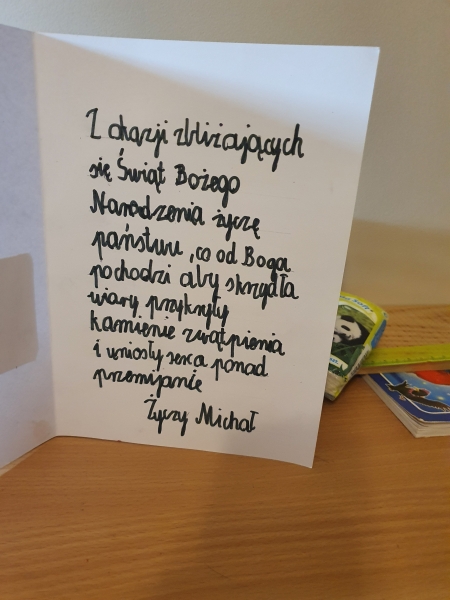 Z okazji zbliżających
się Świąt Bożego
Narodzenia życzę
państwu, co od Boga
pochodzi aby skrzydła
wiary przykryły
kamienie zwątpienia
i uniosły serca ponad
przemijanie
Życzy Michał